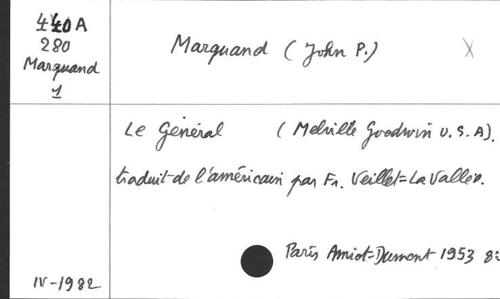 440 A
280
Marquand
1
Marquand (John P.)
X
Le Général (Melville Goodwin U.S.A).
traduit de l'américain par Fr. Veillet=Lavallée.
Paris Amiot=Dumont 1953 8:
IV-1982